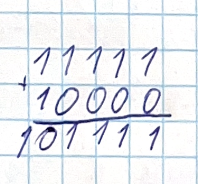 11111
+
10000
101111